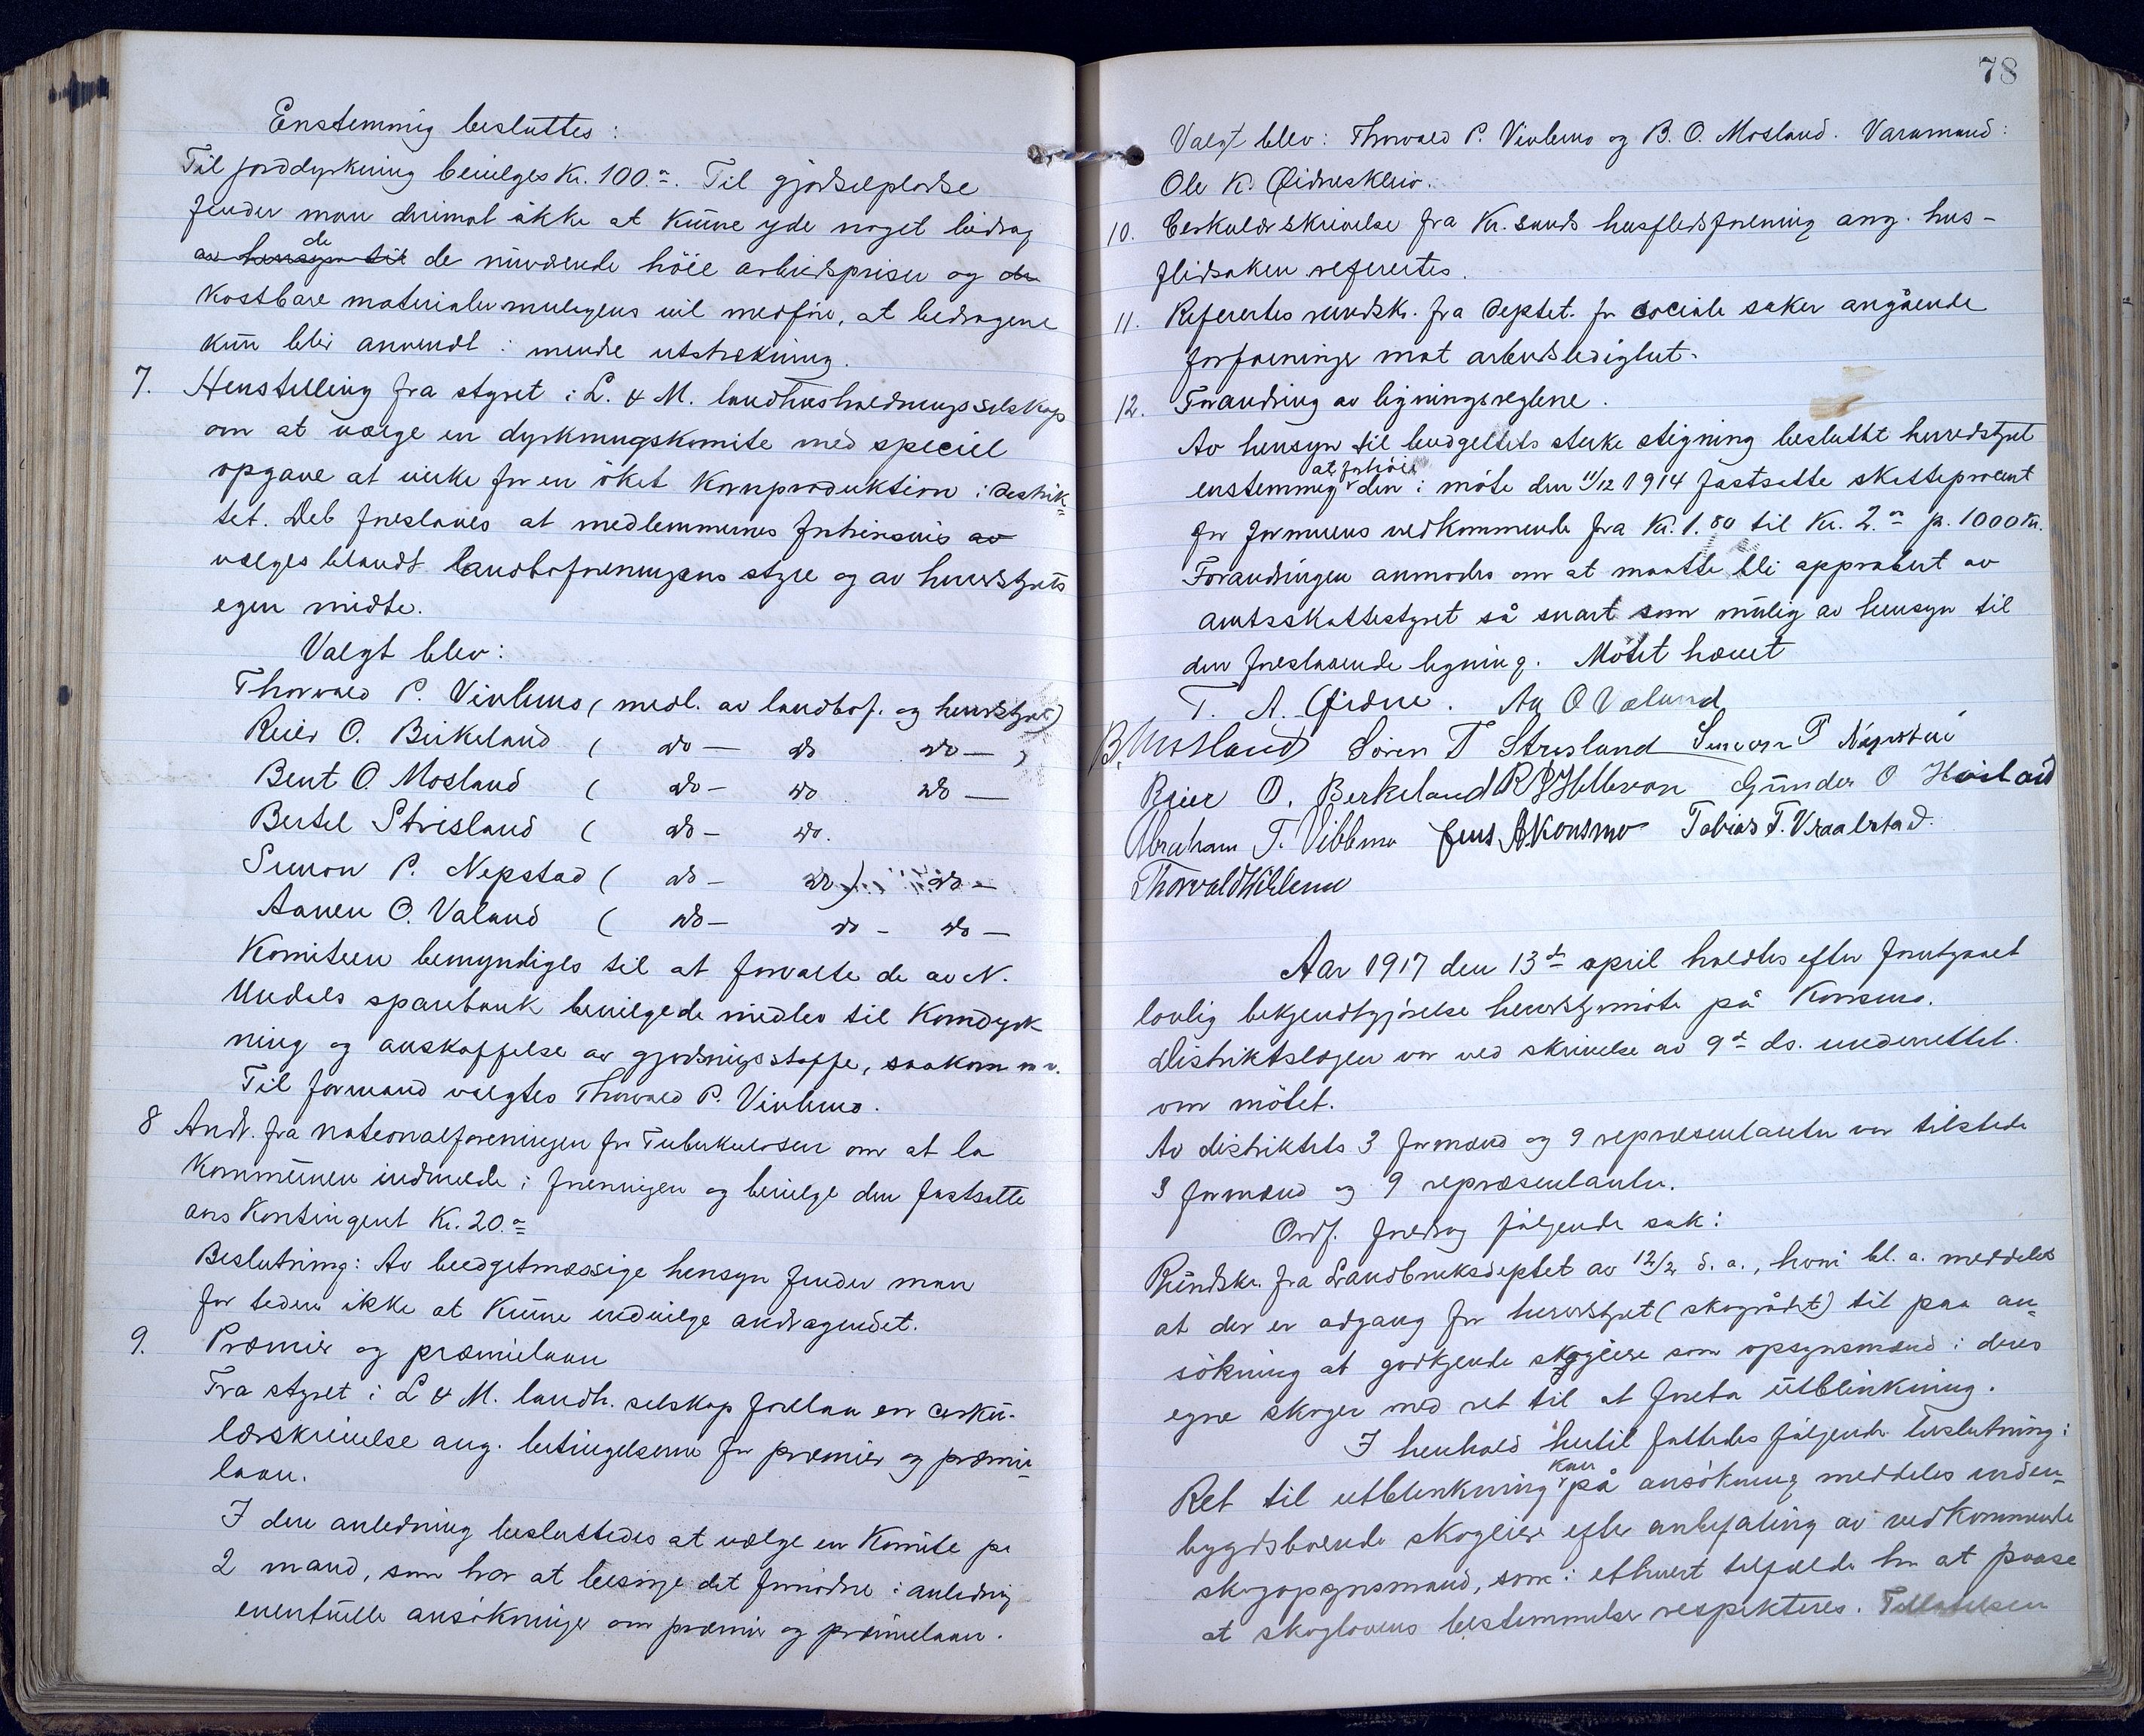 Enstemmig besluttes:
Til jorddyrkning bevilges Kr. 100.-. Til gjødselpladse
finder man derimot ikke at kunne yde noget bidrag
de
av hensyn til de nuværende höie arbeidspriser og de
kostbare materialer muligens vil medföre, at bidragene
kun blir anvendt i mindre utstrekning.
7. Henstilling fra styret i L. & M. landhusholdningsselskap
om at vælge en dyrkningskomite med speciel
opgave at virke for en öket kornproduktion i distrik=
tet. Det foreslaaes at medlemmerne fortrinsvis av
vælges blandt landboforeningens styre og av herredstyrets
egen midte.
Valgt blev:
Thorvald P. Viblemo (medl. av landbof. og herredstyret)
Reier O. Birkeland ( do — do do — )
Bent O. Mosland ( do — do do —
Bertel Strisland ( do — do.
Simon P. Nepstad ( do — do) do —
Aanen O. Valand ( do — do — do —
Komiteen bemyndiges til at forvalte de av N.
Undals sparebank bevilgede midler til Korndyrk
ning og anskaffelse av gjødningsstoffe, saakorn m. v.
Til formand valgtes Thorvald P. Viblemo.
8 Andr. fra nationalforeningen for Tuberkulosen om at la
Kommunen indmelde i foreningen og bevilge den fastsatte
ars Kontingent Kr. 20.-
Beslutning: Av budgetmæssige hensyn finder man
for tiden ikke at kunne indvilge andragendet.
9. Præmier og præmielaan
Fra styret i L & M. landh. selskap forelaa en cirku-
lærskrivelse ang. betingelserne for præmier og præmie-
laan.
I den anledning besluttedes at vælge en Komite pa
2 mand, som har at besörge det fornödne i anledning
eventuelle ansökninger om præmier og præmielaan.
78
Valgt blev: Thorvald P. Viblemo og B. O. Mosland. Varamand:
Ole K. Øidneskleiv.
10. Cirkulær skrivelse fra Kr.sands husflidsforening ang. hus-
flidsaken refertes.
11. Refertes rundskr. fra Deptet. for sociale saker angående
forføininger mot arbeidsledighet.
12. Forandring av ligningsreglene.
Av hensyn til budgettets sterke stigning besluttet herredstyret
at forhöie
enstemmig den i möte den 11/12 1914 fastsatte skatteprocent
for formuens vedkommende fra Kr. 1.80 til Kr. 2.- p. 1000 Kr.
Forandringen anmodes om at maatte bli approbert av
amtsskattestyret så snart som mulig av hensyn til
den forestaaende ligning. Mötet hævet
T. A. Øidne. Aa O Valand
B. Mosland Sören T Strisland Simon P Nepstad
Reier O. Berkeland Gunder O Höiland
Abraham T. Viblemo Jens A Konsmo Tobias T. Vraalstad.
Thorvald Viblemo
Aar 1917 den 13de april holdtes efter forutgaaet
lovlig bekjendtgjörelse herredstyremöte på Konsmo.
Distriktslægen var ved skrivelse av 9de ds. underrettet
om mötet.
Av distriktets 3 formænd og 9 repræsentanter var tilstede
3 formænd og 9 repræsentanter.
Ordf. foredrog følgende sak:
Rundskr. fra Landbruksdeptet av 12/2 d. a., hvori bl. a. meddeles
at der er adgang for herredstyret (skogrådet) til paa an=
sökning at godkjende skogeiere som opsynsmænd i deres
egne skoger med ret til at foreta utblinkning.
I henhold hertil fattedes følgende beslutning:
kan
Ret til utblinkning på ansökning meddeles inden=
bygdsboende skogeiere efter anbefaling av vedkommende
skogopsynsmand, som i ethvert tilfælde har at paase
at skoglovens bestemmelser respekteres. Tilladelsen